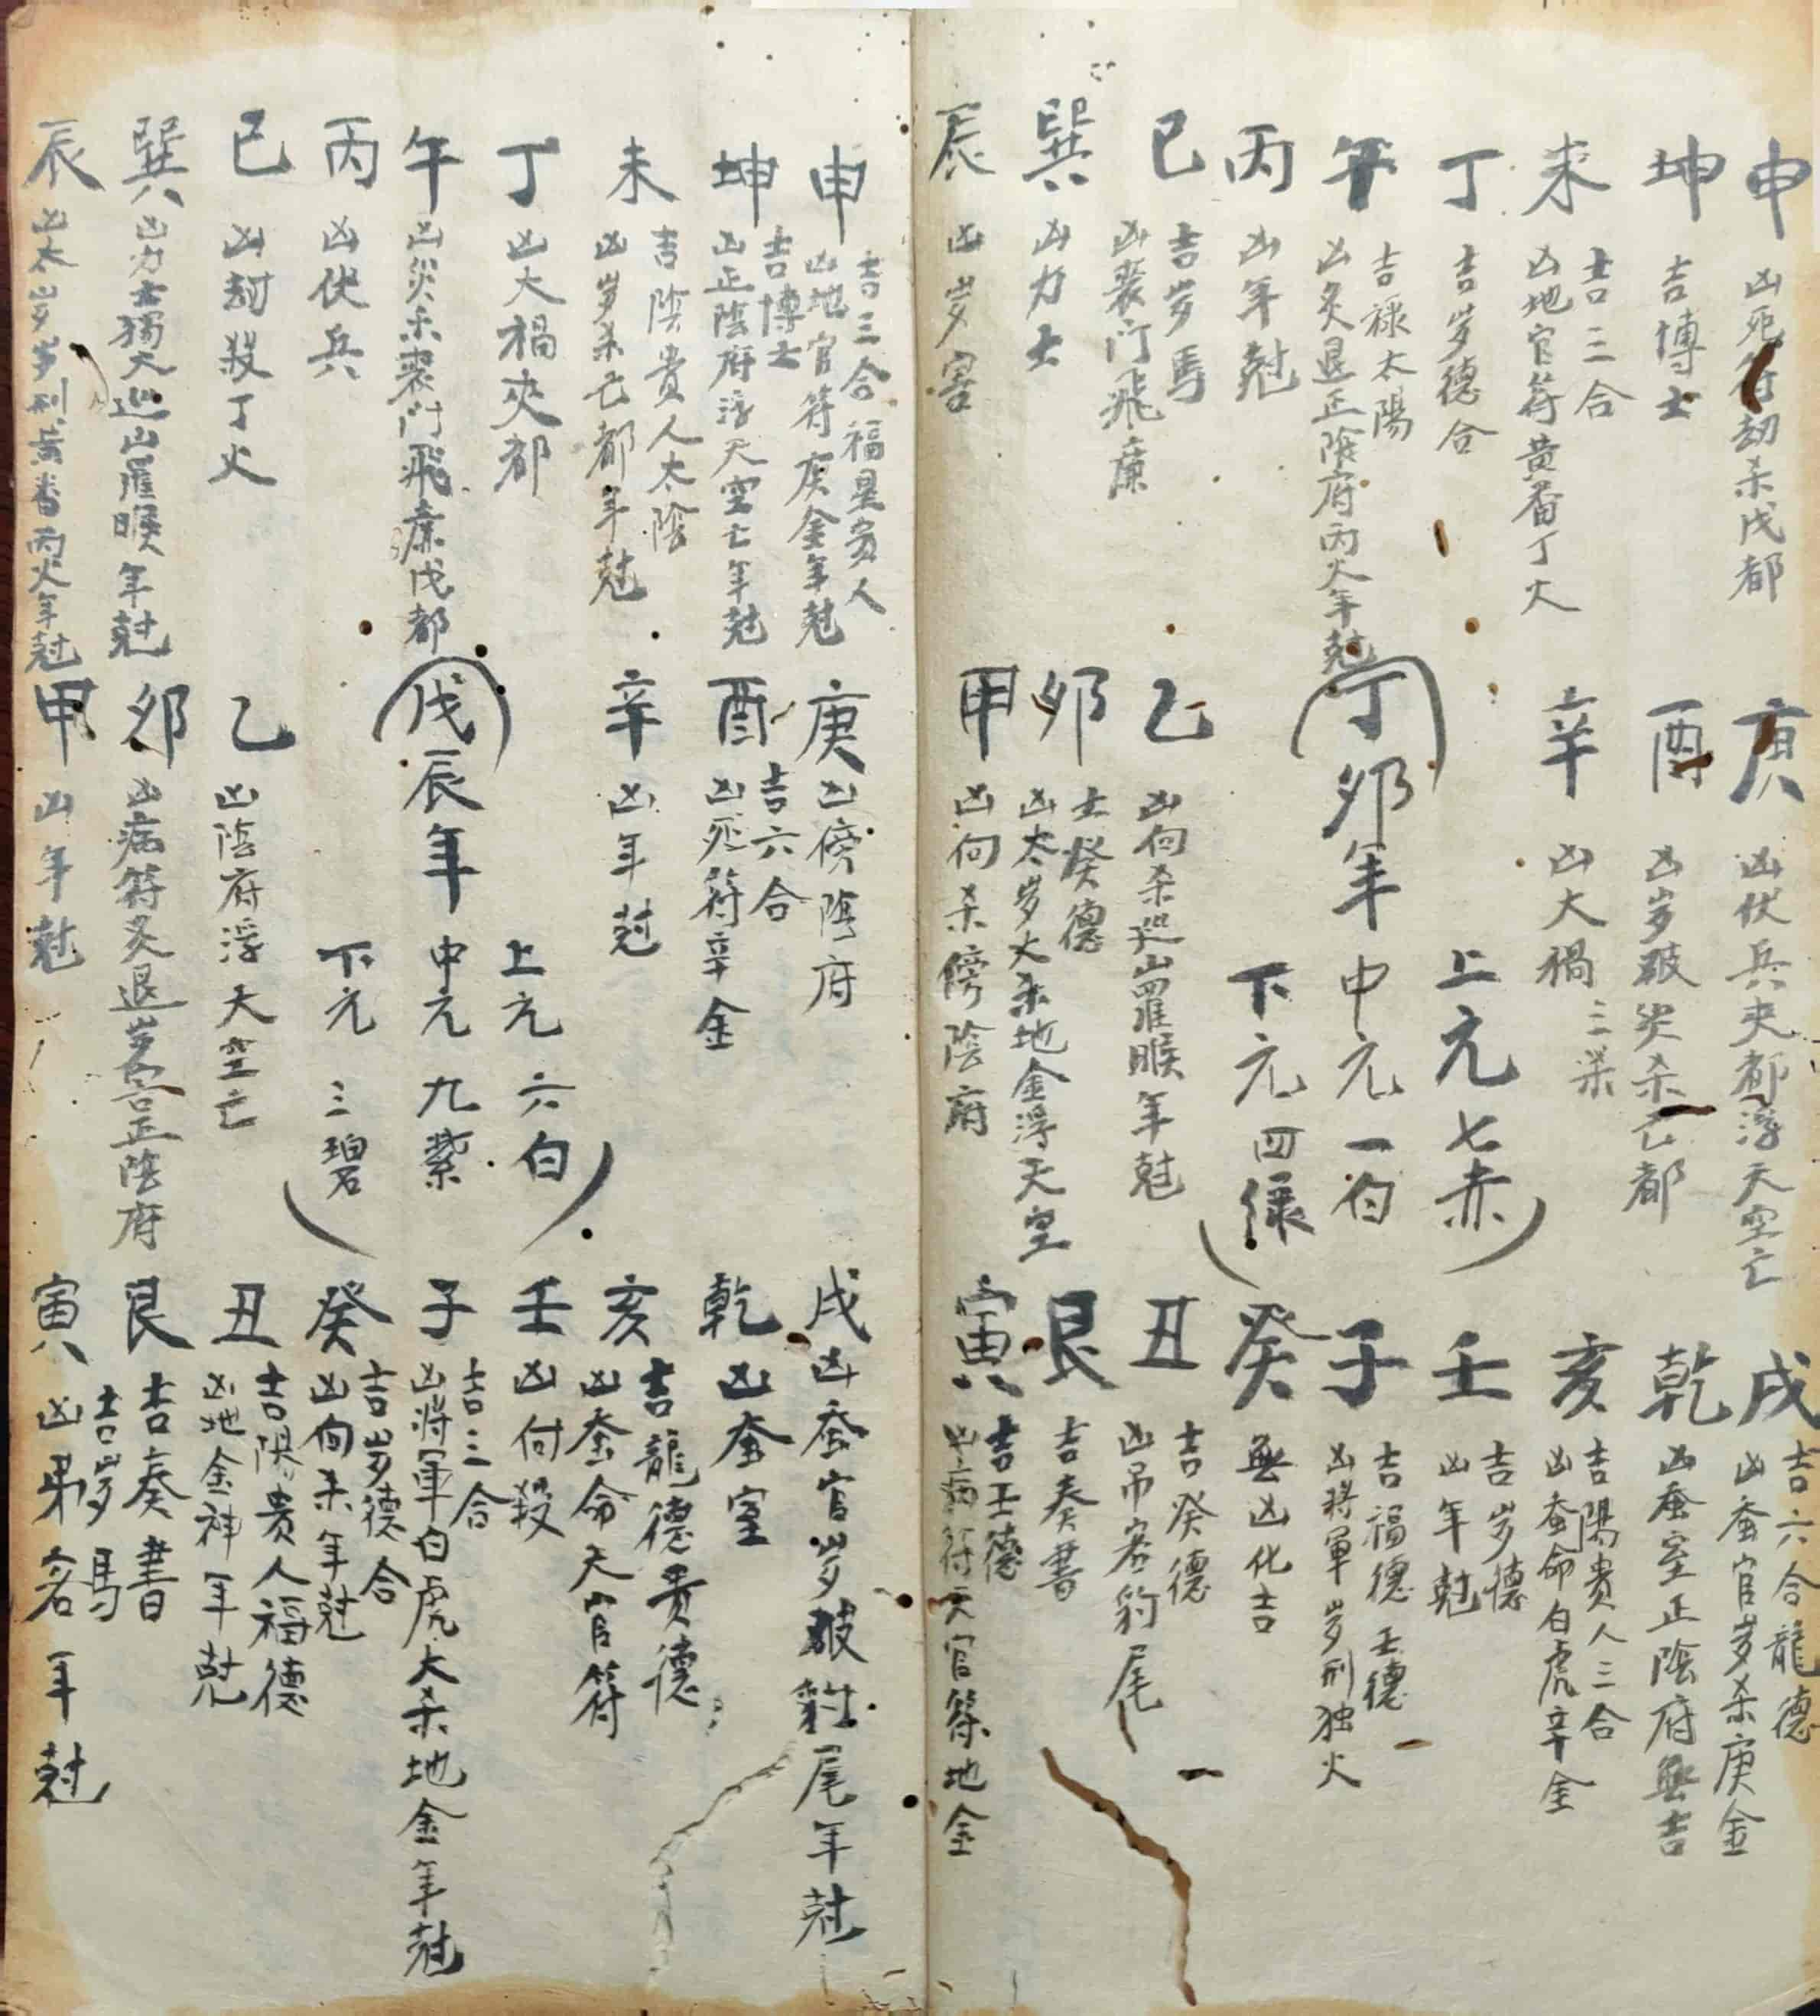 申 凶死符劫杀戊都
坤 吉博士
未 吉三合
凶地官符黄番丁火
丁 吉岁德合
午 吉禄太陽
凶灸退正陰府丙火年尅
丙 凶年尅
巳 吉岁馬
凶喪门飛廉
巽 凶力士
辰 凶岁害
庚 凶伏兵夹都浮天空亡
酉 凶岁破災杀己都
辛 凶大禍
三杀
(丁)卯年
上元七赤
中元一白
下元四禄
乙 凶向杀巡山羅睺年尅
卯 士癸德
凶太岁大杀地金浮天空
甲 凶向杀傍陰府
戌 吉六合龍德
凶蚕官岁杀庚金
乾 凶蚕室正陰府無吉
亥 吉陽貴人三合
凶蚕命白虎辛金
壬 吉岁德
凶年尅
子 吉福德壬德
凶将軍岁刑独火
癸 無凶化吉
丑 吉癸德
凶吊客豹尾
艮 吉奏書
寅 吉壬德
凶病符天官符地金
申 吉三合福星貴人
凶地官符庚金年尅
坤 吉博士
凶正陰府浮天空亡年尅
未 吉陰貴人太陰
凶岁杀己都年尅
丁 凶大禍夾都
午 凶災杀喪门飛廉戊都
丙 凶伏兵
巳 凶刼殺丁火
巽 凶力士獨火巡山羅睺年尅
辰 凶太岁岁刑黄番丙火年尅
庚 凶傍陰府
酉 吉六合
凶死符辛金
辛 凶年尅
(戊)辰年
上元六白
中元九紫
下元三碧
乙 凶陰府浮天空亡
卯 凶病符灸退岁害正陰府
甲 凶年尅
戌 凶蚕官岁破豹尾年尅
乾 凶蚕室
亥 吉龍德貴德
凶蚕命天官符
壬 凶向殺
子 吉三合
凶将軍白虎大杀地金年尅
癸 吉岁德合
凶向杀年尅
丑 吉陽貴人福德
凶地金神年尅
艮 吉奏書
寅 吉岁馬
凶弔客年尅